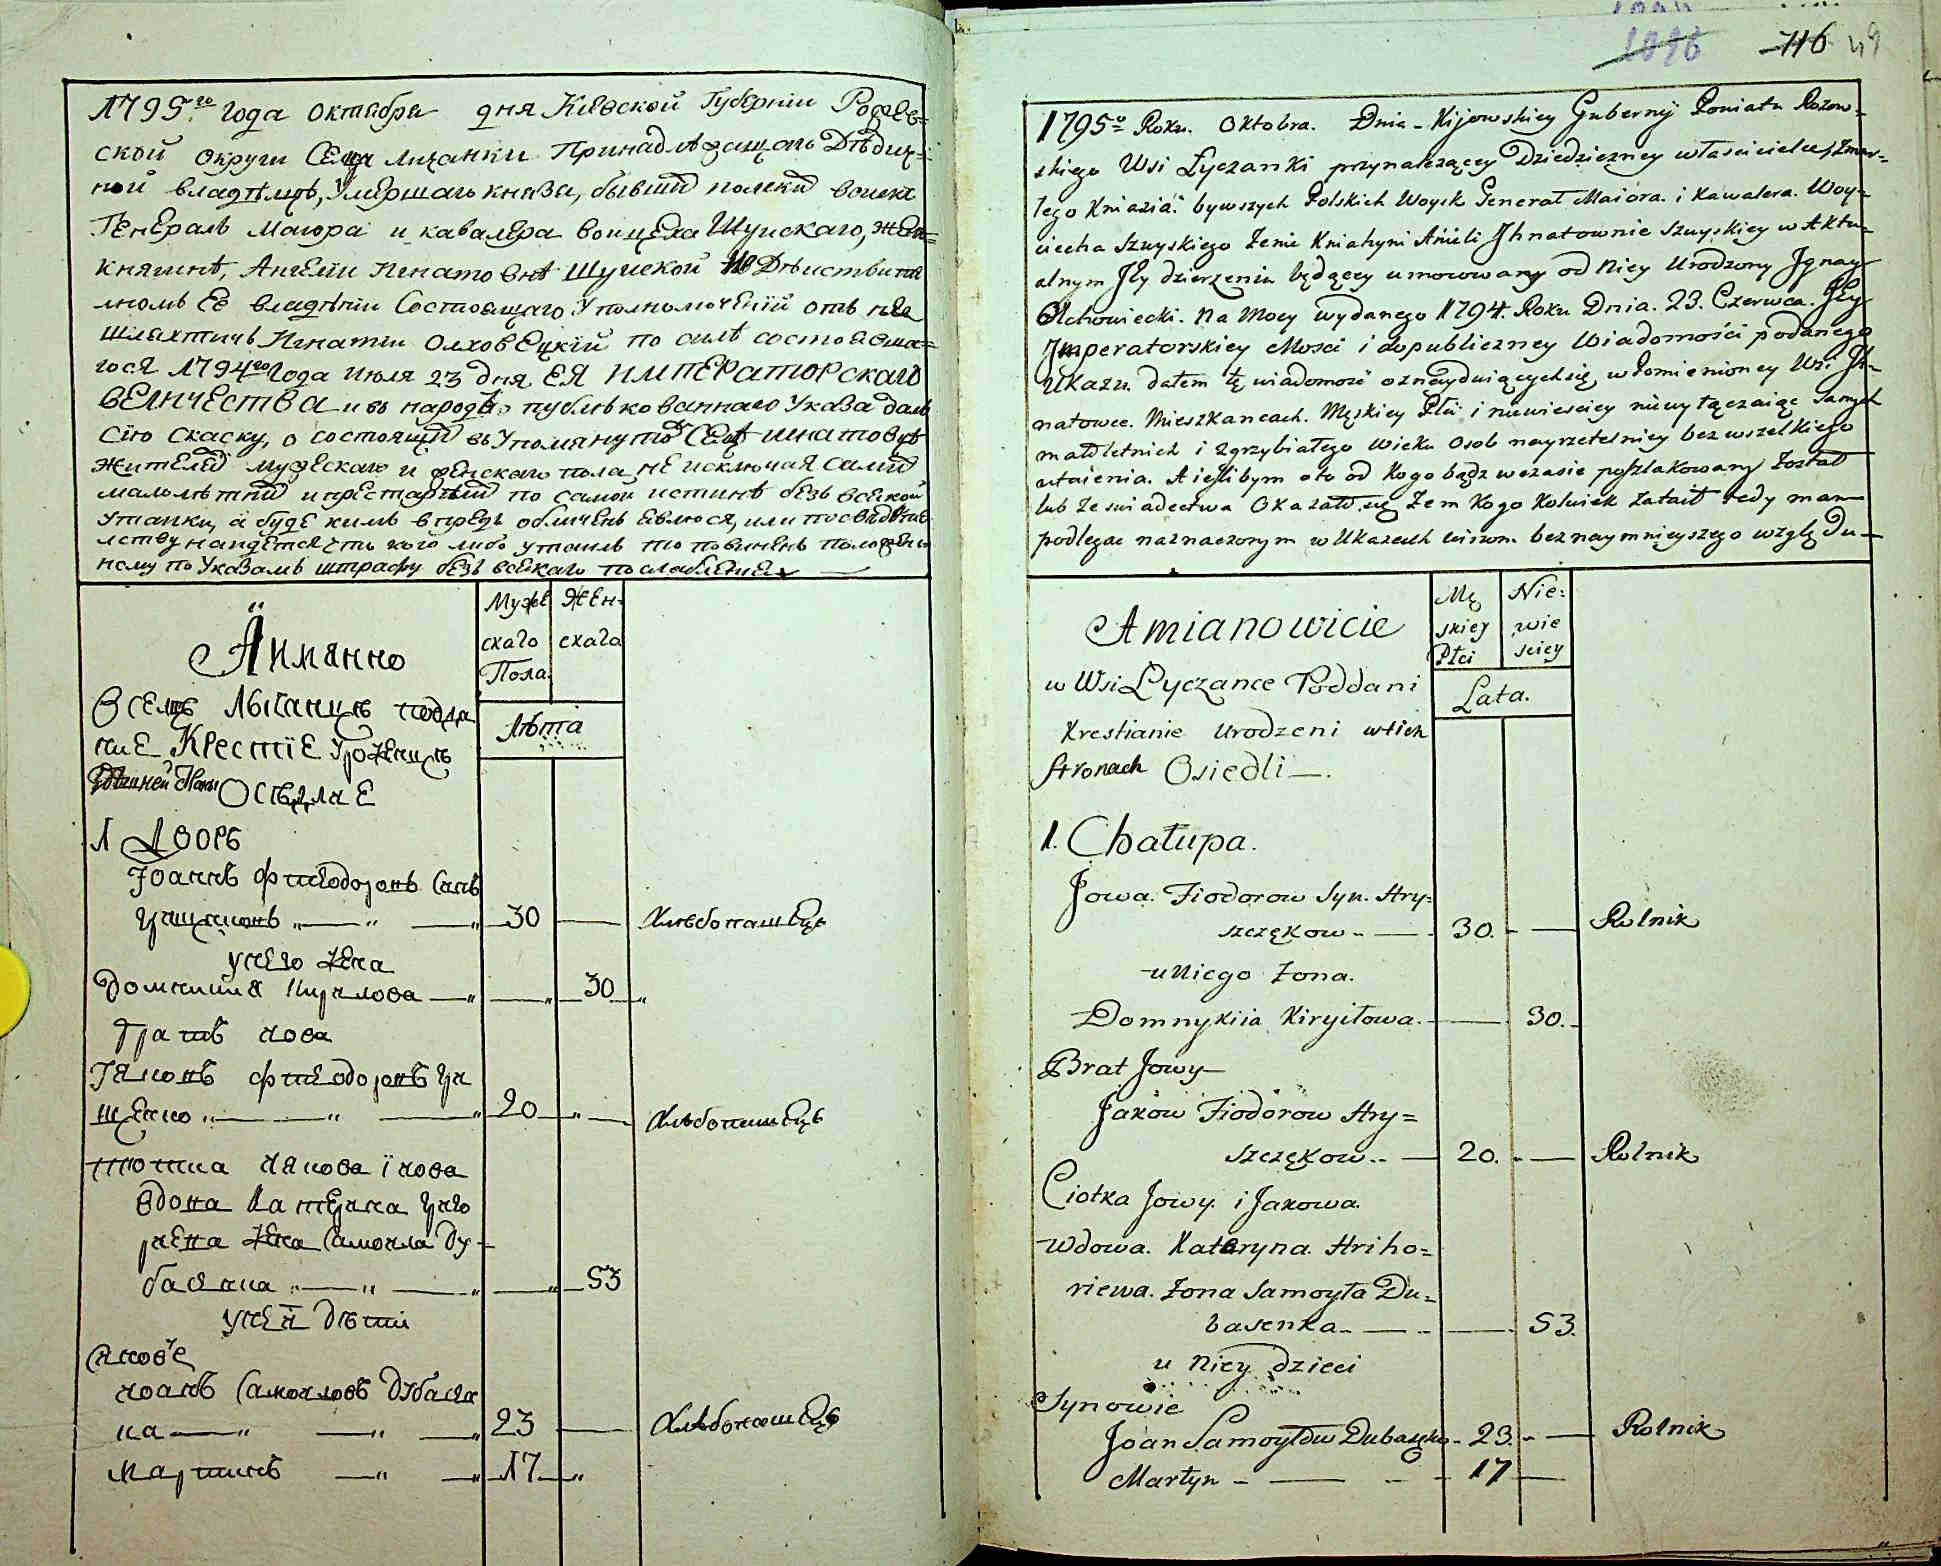 1795го года октабра дня Киевской Губернии Рожев=
ской округи Села Личанки Принадлежащаго Дѣдич=
ной владѣлцѣ, Умершаго князя, бывшид полских воиск
Генералъ Маиора и кавалера воицеха Шуискаго, жен=
княгинѣ, Ангели Игнатовнѣ Шуйской въ Дѣиствител
люмъ Ее владѣнии Состоящаго Уполномочений отъ нее
Шляхтичъ Игнатий Олховецкий по силѣ состоявша=
гося 1794го года июля 23 дня ЕЯ ИМПЕРАТОРСКАГО
ВЕЛИЧЕСТВА и въ народѣ публѣкованнаго Указа даю
Сію скаску, о состоящих въ упомянутой Селѣ Игнатовцѣ
жителей мужескаго и женскаго пола не исключая самих
малолѣтних и престарѣлих по самои истинѣ безъ всякой
утаики, а буде кимъ впредь обличенъ явлюся, или по свидѣте
лству найдется что кого либо утаилъ то повиненъ положен
ному по Указамъ штрафу безъ всякаго послабления
А имянно
Муже
скаго
Пола.
Жен-
скаго
Лѣта
В селѣ Лычанцѣ подда
ние Крестіе Уроженцѣ
Осѣдлие
1 Дворъ
Іоаннъ Фтеодоровъ Синъ
Грищенковъ 30 Хлѣбопашецъ
у него жена
Домникия Кирилова 30
Братъ Иова
Іяковъ Фтеодоровъ Гри
щенко 20 Хлѣбопашецъ
тютка Иякова і Иова
вдова Катерина Григо
риева жена Самоила Ду-
басяка 53
у неи дѣти
Синовѣ
Иоанъ Самоиловъ Дубасен
ка 23 Хлѣбопашецъ
Мартинъ 17
1896 116 49
1795o Roku. Oktobra. Dnia - Kijowskiey Guberny Poniatu Rozow=
skiego Wsi Lyczanki przynależący Dziedziczney właścicielce, Zmar=
łego Kniazia bywszych Polskich Woysk Generał Maiora i Kawalera. Woy=
ciecha Szuyskiego Żenie Kniahyni Anieli Jhnatownie Szuyskiey w Aktu=
alnym Jey dzierżeniu będący umocowany od Niey Urodzony Jgnacy
Olchowiecki. Na Mocy wydanego 1794. Roku Dnia. 23. Czerwca. Jey
Jmperatorskiey Mosci i do publiczney Wiadomości podanego
Ukazu. datem tę wiadomość o znayduiącychsię w Pomienioney Wsi Jh=
natowce. Mieszkancach. Męskiey Płci i niewiesciey niewyłączaiąc Samych
małoletnich i zgrzybiałego wieku Osob nayrzetelniey bez wszelkiego
utaienia. A ieśli bym oto od Kogo bądz wczasie poszlakowany został
lub ze swiadectwa Okazało się żem Kogo Kolwiek Zataił tedy mam
podlegac naznaczonym w Ukazach winom. bez naymnieyszego wzglę Du—
Amianowicie
Mę
skiey
Płci
Nie:
wie
sciey
Lata.
w Wsi Lyczance Poddani
Krestianie Urodzeni w tich
Stronach Osiedli—.
1. Chałupa.
Jowa. Fiodorow Syn. Hry=
szczękow 30. Rolnik
u Niego Żona.
Domnykiia Kiryiłowa. 30.
Brat Jowy
Jakow Fiodorow Hry=
szczękow 20. Rolnik
Ciotka Jowy. i Jakowa.
Wdowa. Kataryna. Hriho=
riewa. Żona Samoyła Du=
basenka 53.
u Niey dzieci
Synowie
Joan Samoyłow Dubasęko 23. Rolnik
Martyn 17